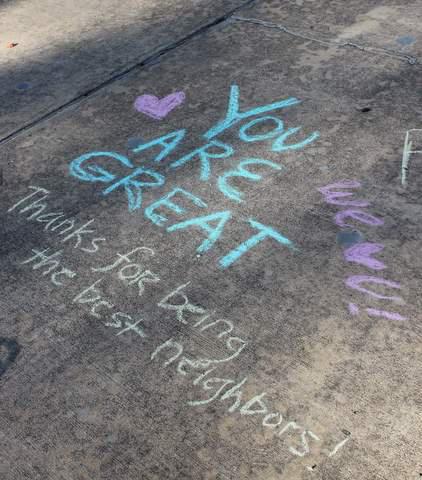 YOU
ARE
GREAT
Thanks for being
the best neighbors!
We
♥ U!!
F